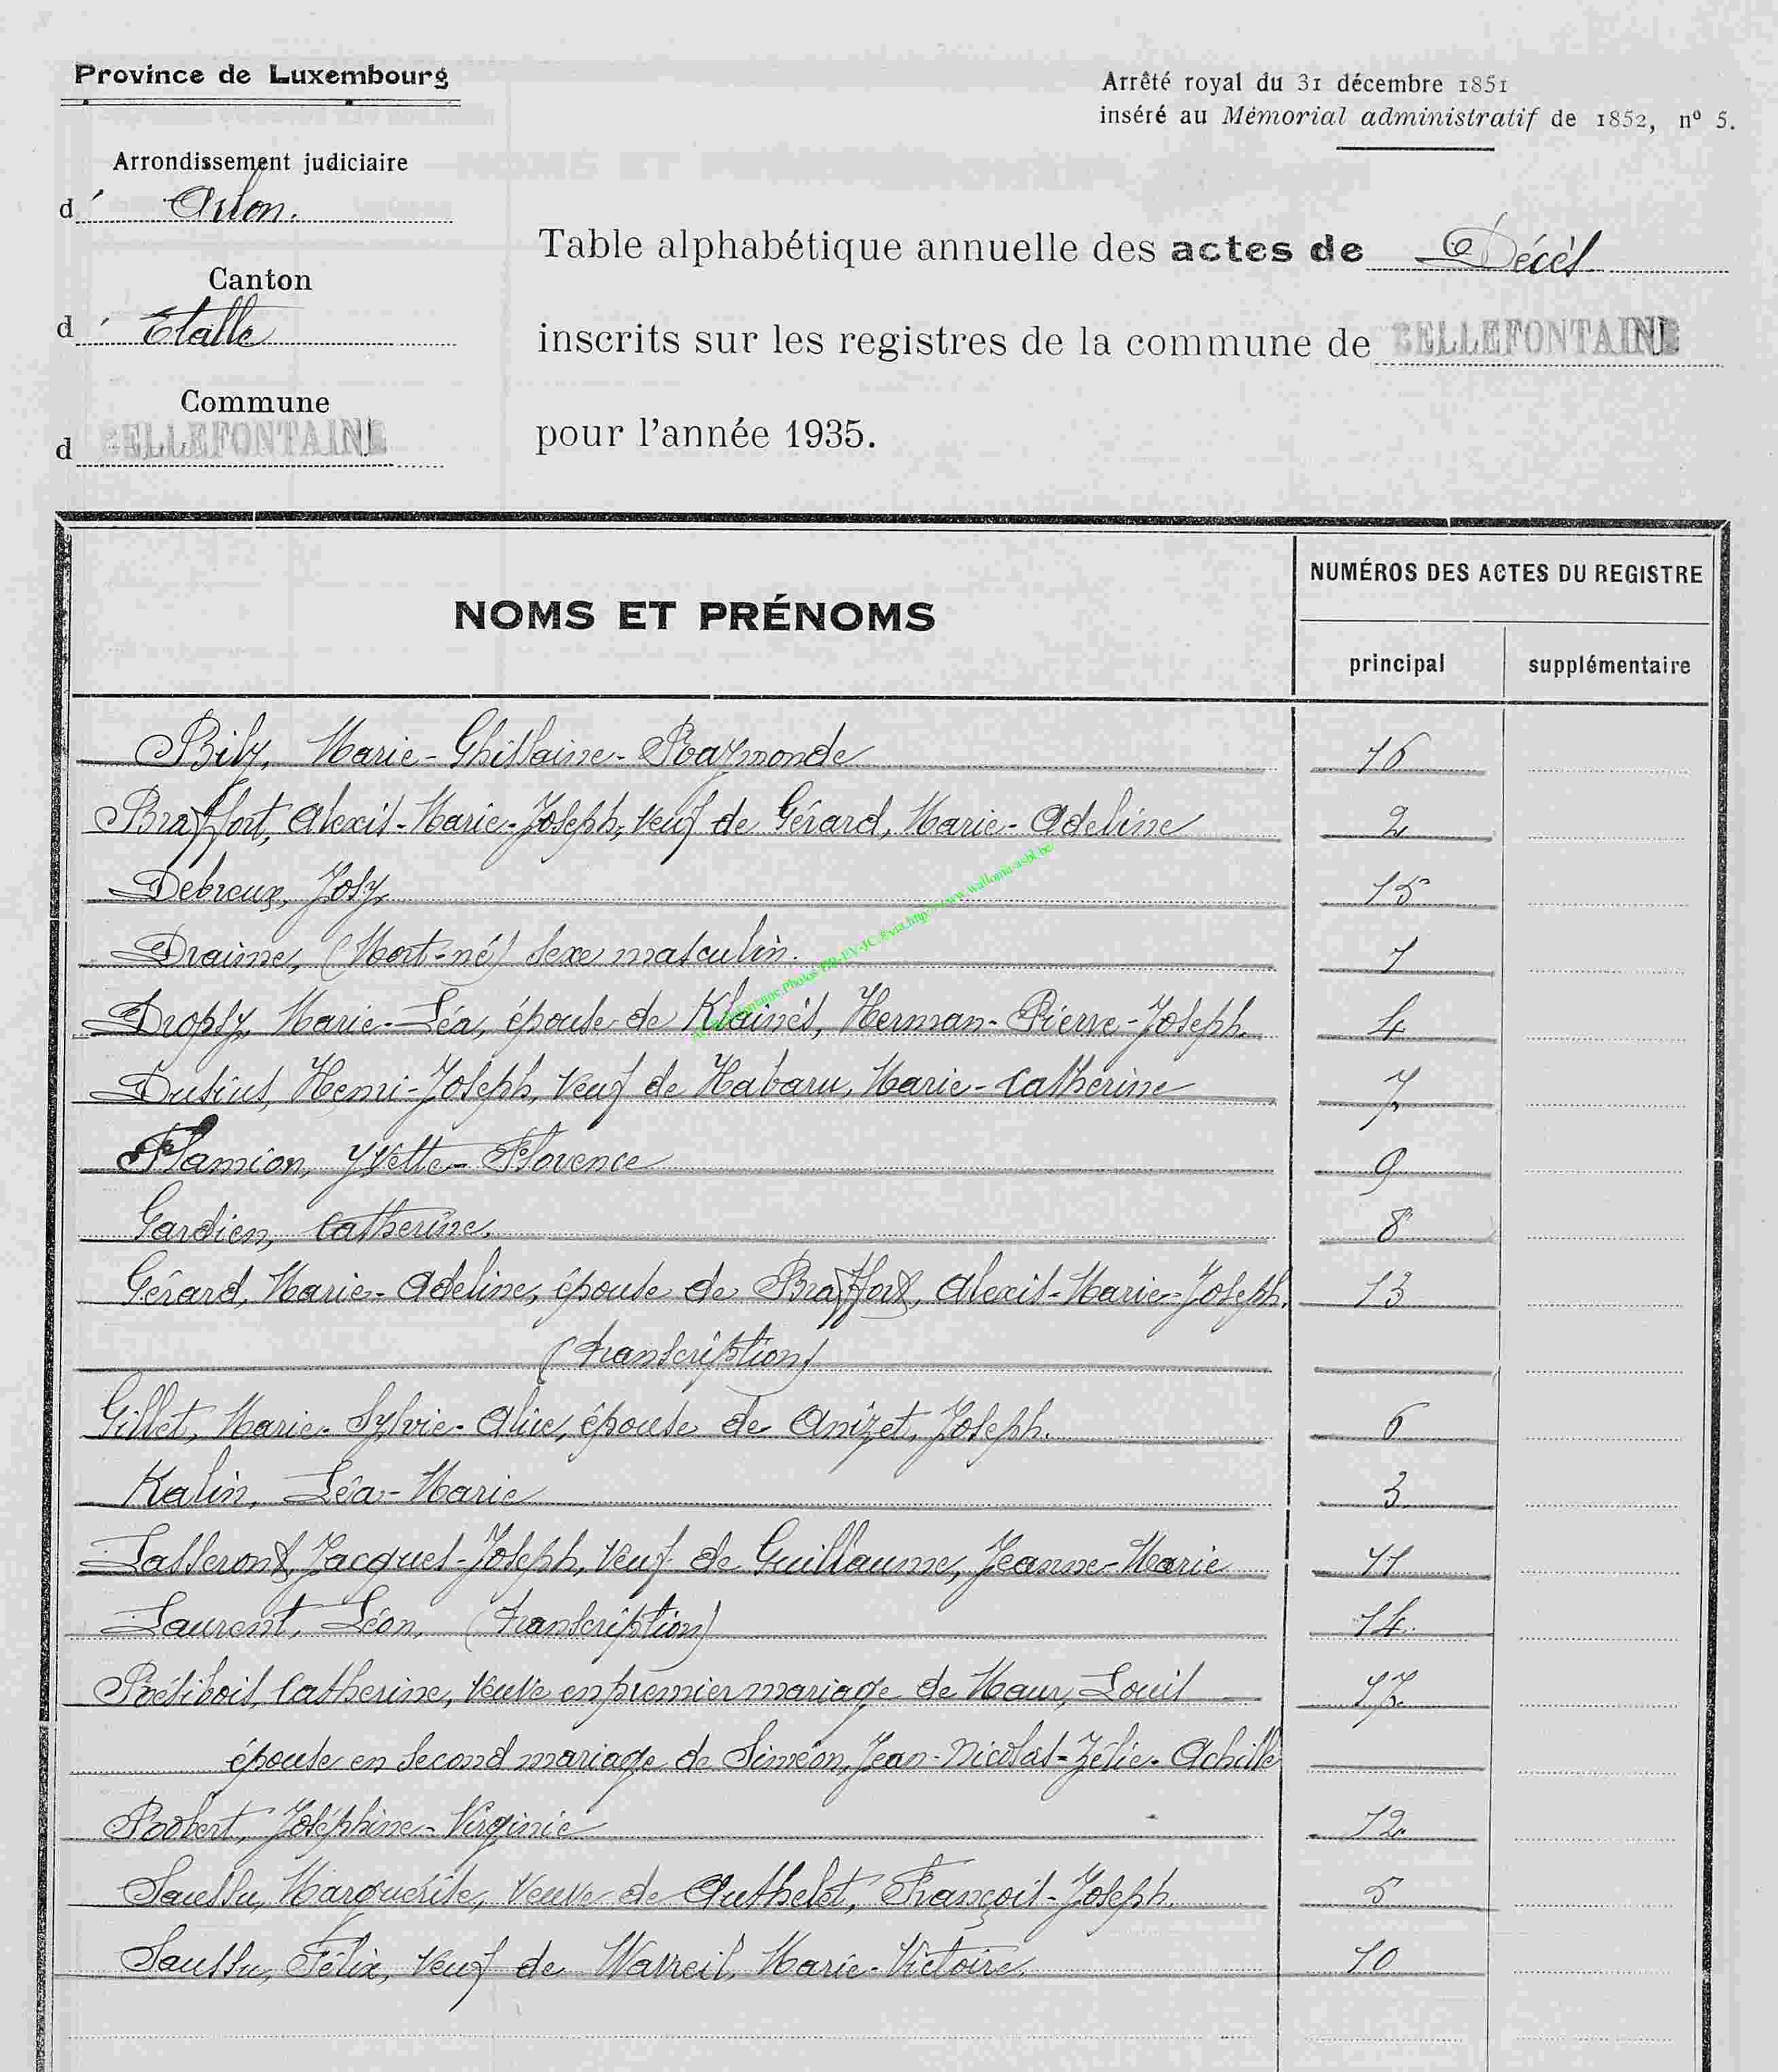 Province de Luxembourg
Arrêté royal du 31 décembre 1851
inséré au Mémorial administratif de 1852, nº 5.
Arrondissement judiciaire
d' Arlon.
Canton
d' Etalle
Commune
d BELLEFONTAINE
Table alphabétique annuelle des actes de Décès
inscrits sur les registres de la commune de BELLEFONTAINE
pour l'année 1935.
NOMS ET PRÉNOMS
NUMÉROS DES ACTES DU REGISTRE
principal supplémentaire
Bily, Marie-Ghislaine-Raymonde 16
Braffort, Alexis-Marie-Joseph, veuf de Gérard, Marie-Adeline 2
Debreux, Josy 15
Draime, (Mort-né) sexe masculin. 1
Dropsy, Marie-Léa, épouse de Klainès, Herman-Pierre-Joseph. 4
Dusius, Henri-Joseph, veuf de Habaru, Marie-Catherine 7
Flamion, Yvette-Florence 9
Gardien, Catherine. 8
Gérard, Marie-Adeline, épouse de Braffort, Alexis-Marie-Joseph. 13
(transcription)
Gillet, Marie-Sylvie-Alice, épouse de Anizet, Joseph. 6
Kalin, Léa-Marie 3
Lasseront, Jacques-Joseph, veuf de Guillaume, Jeanne-Marie 11
Laurent, Léon. (transcription) 14.
Catherine, veuve en premier mariage de Maur, Louis 17.
épouse en second mariage de Siméon, Jean-Nicolas-Zélie-Achille
Robert, Joséphine-Virginie 12.
Saussu, Marguerite, veuve de Authelet, François-Joseph. 5
Saussu, Félix, veuf de Marie-Victoire. 10